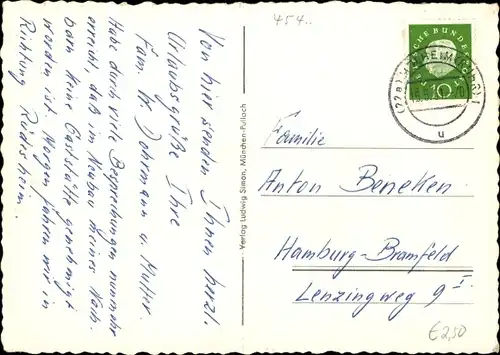 Von hier senden Ihnen herzl.
Urlaubsgrüße Ihre
Fam. W. Dohrmann u. Mutter.
Habe durch viele Besprechungen nunmehr
erreicht, daß im Neubau meines Nach-
barn keine Gaststätte genehmigt
worden ist. Morgen fahren wir in
Richtung Rüdesheim.
Verlag Ludwig Simon, München-Pullach
454..
DEUTSCHE BUNDESPOST
10
(22a)
u
Familie
Anton Beneken
Hamburg-Bramfeld
Lenzingweg 9 I.
€2,50